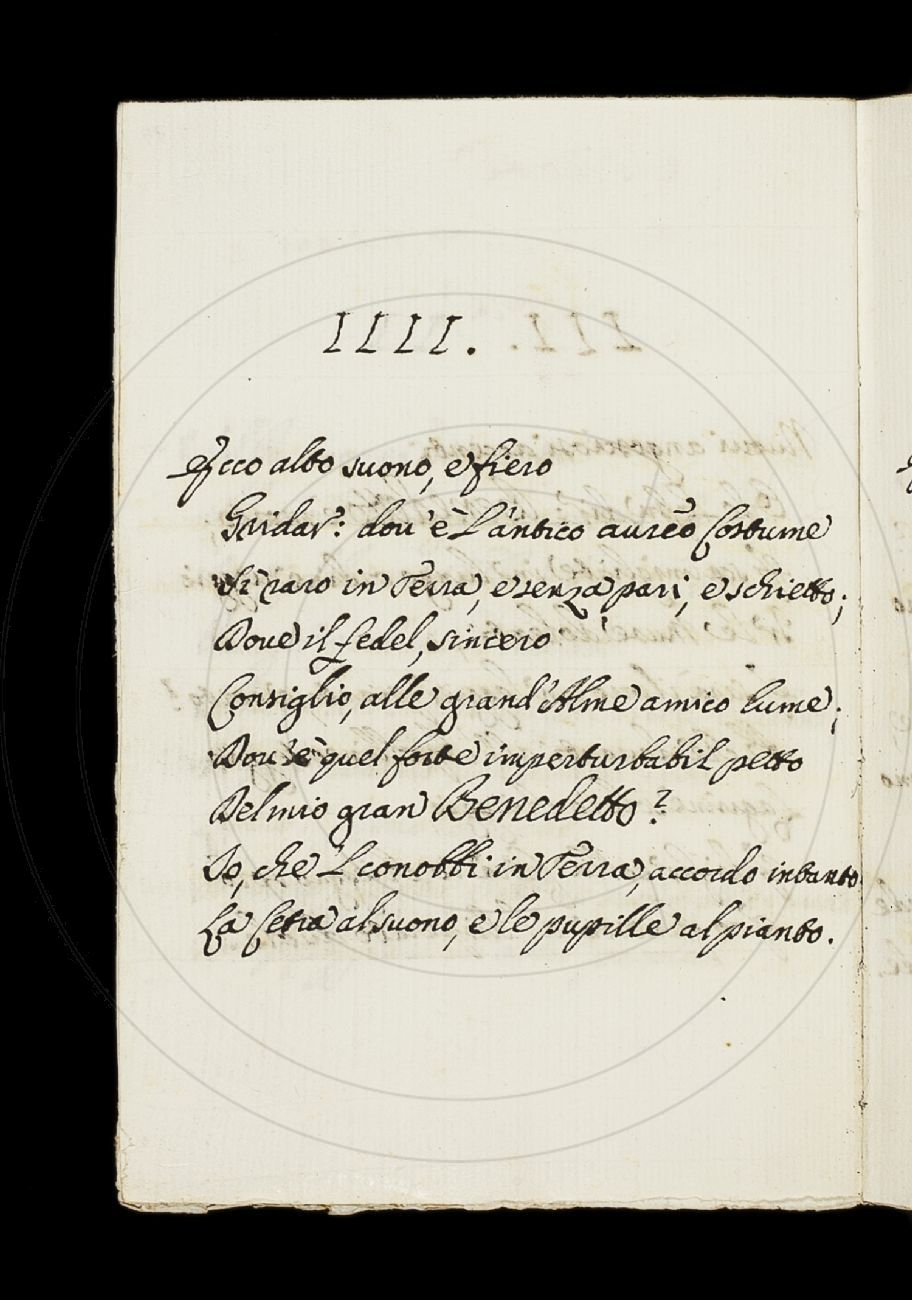 IIII.
Ecco alto suono, e fiero
Gridar: dov'è L'antico aureo Costume
Sì raro in Terra, e senza pari, e schietto;
Dove il fedel, sincero
Consiglio, alle grand'Alme amico lume;
Dov'è quel forte imperturbabil petto
Del mio gran Benedetto?
Io, che 'L conobbi in Terra, accordo intanto
La Cetra al suono, e le pupille al pianto.